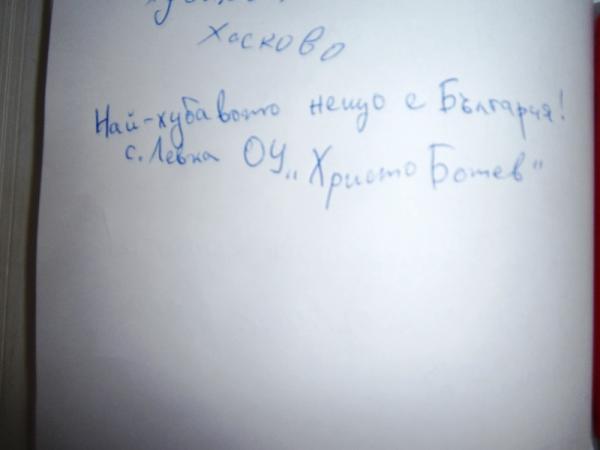 Хасково
Най-хубавото нещо е България!
с. Левка ОУ „Христо Ботев"